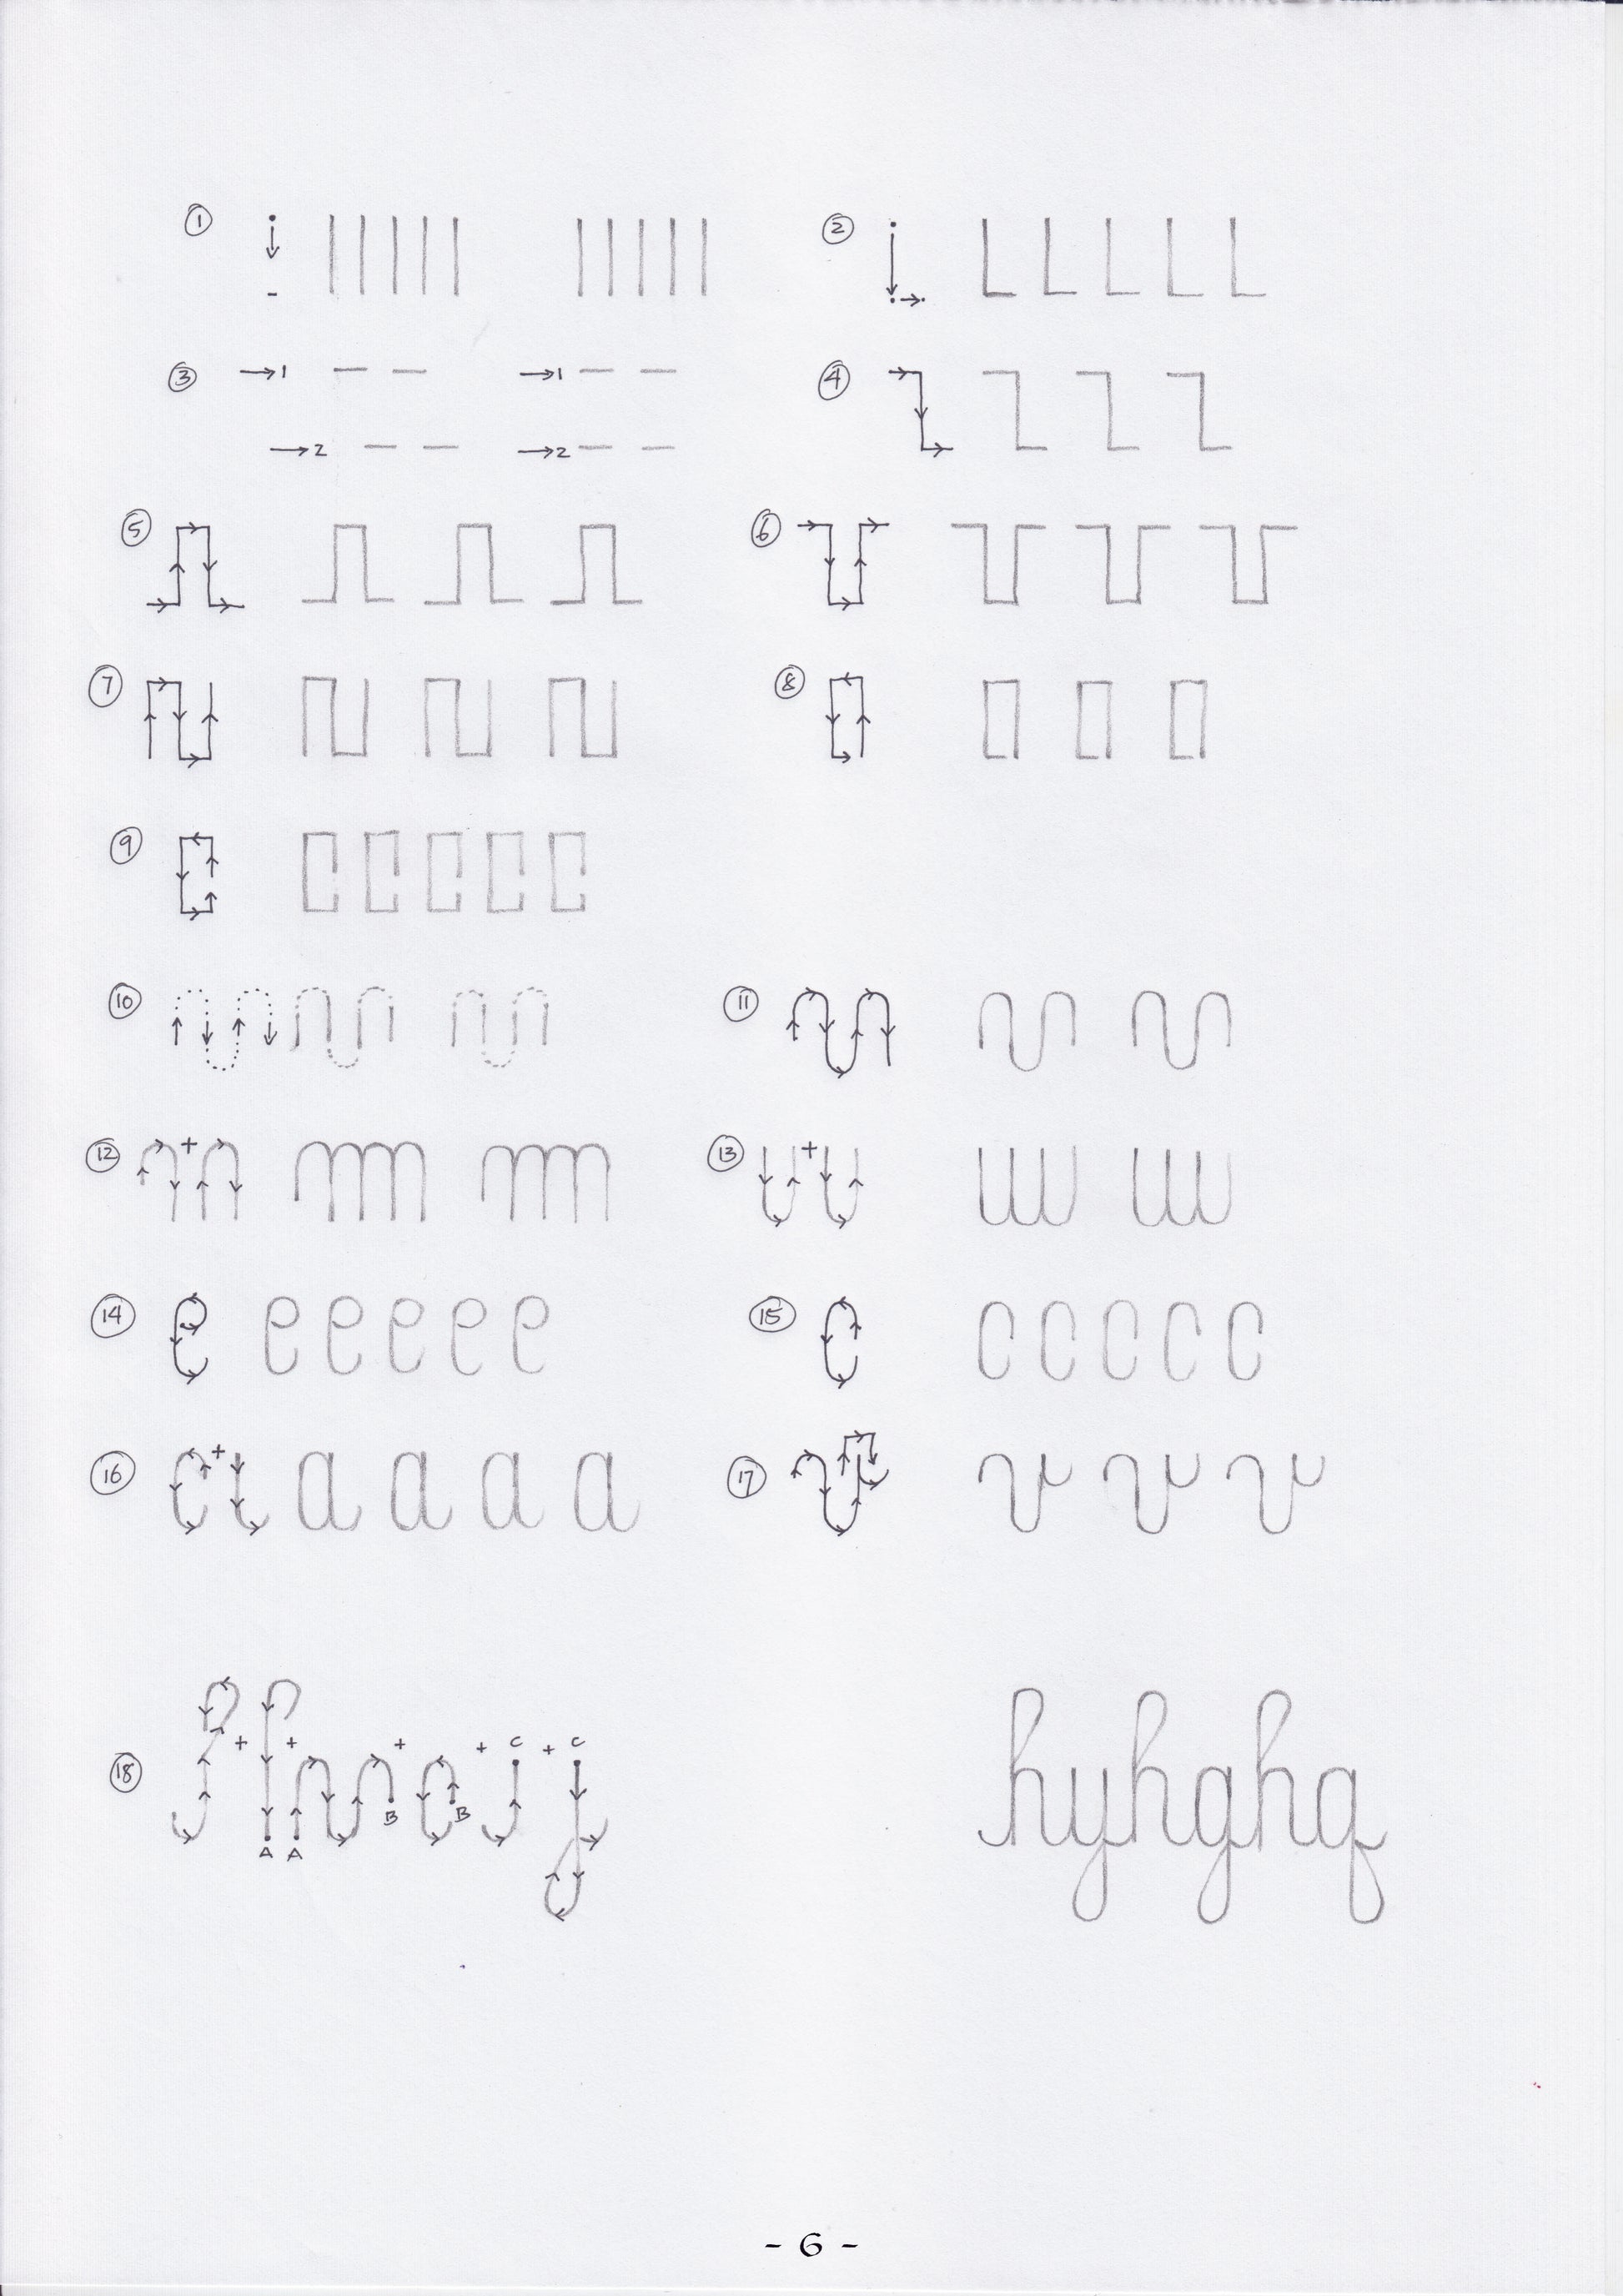 1 2
3 →1 →1 4
→2 →2
5 6
7 8
9
10 11
12 + 13 +
14 e e e e e 15 c c c c c
16 + a a a a 17
18 + + + + C + C hyhghq
A A B B
- 6 -